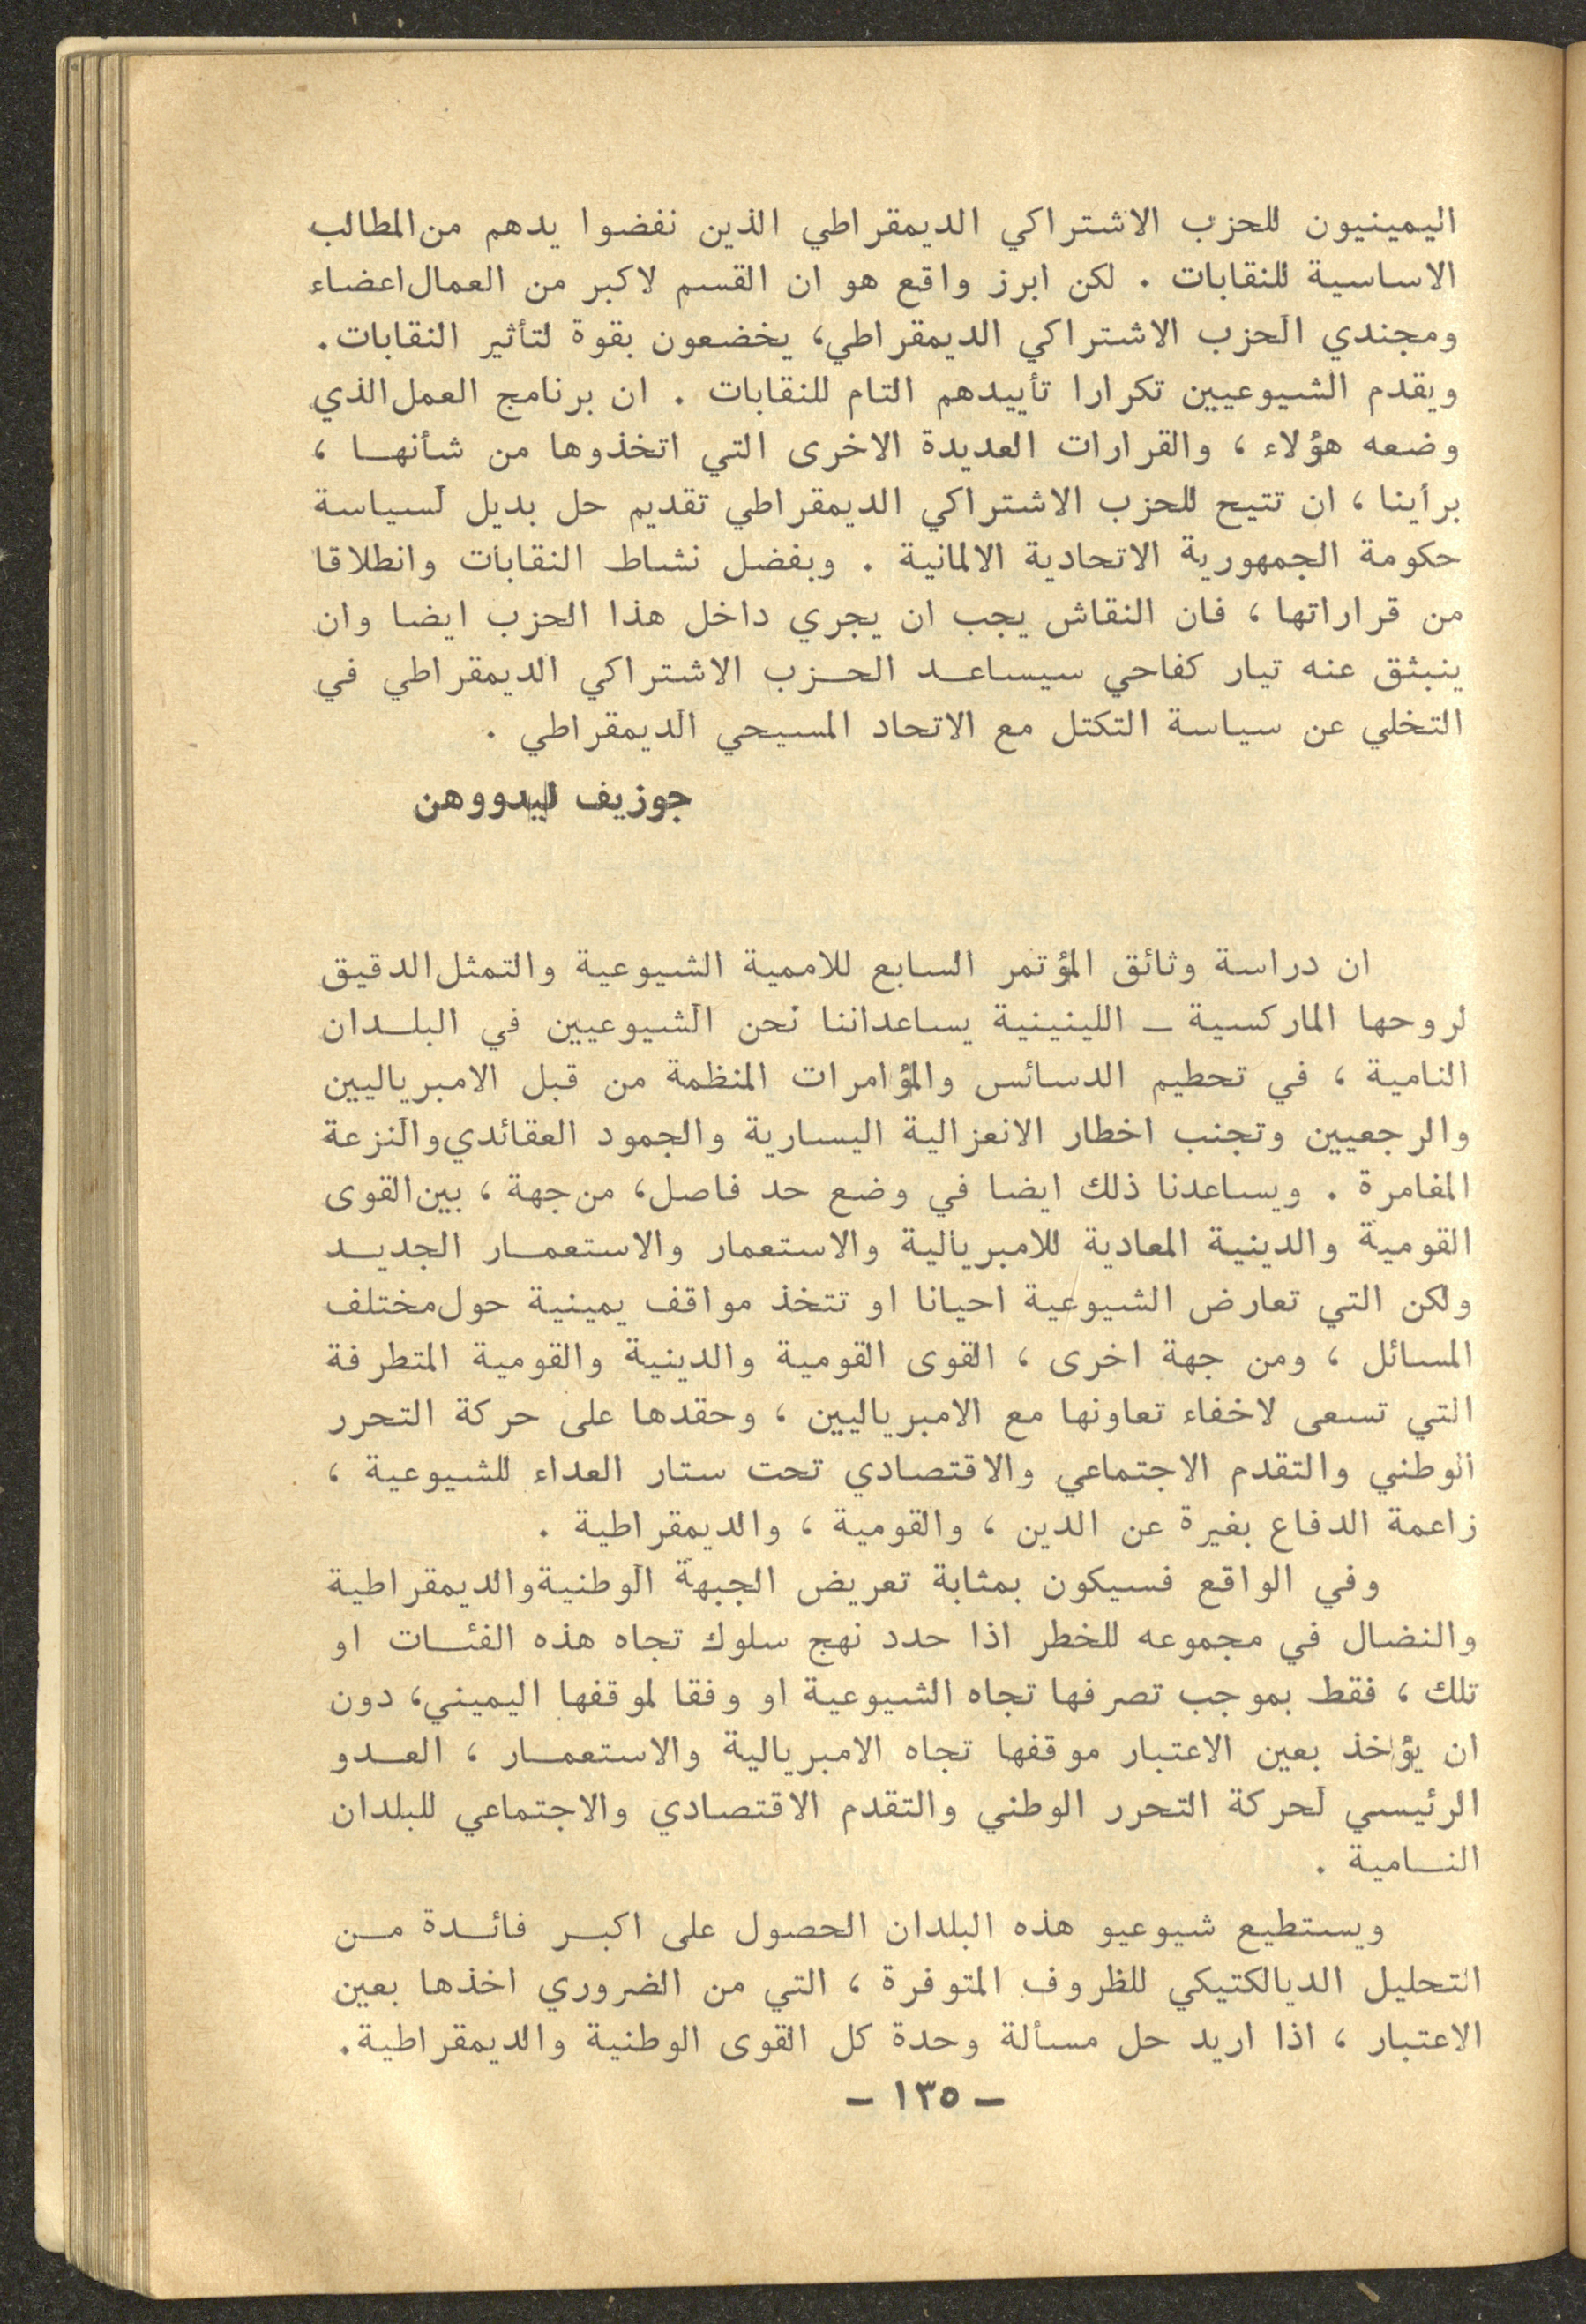 اليمينيون للحزب الاشتراكي الديمقراطي الذين نفضوا يدهم من المطالب
الاساسية للنقابات . لكن ابرز واقع هو ان القسم لاكبر من العمال اعضاء
ومجندي الحزب الاشتراكي الديمقراطي، يخضعون بقوة لتأثير النقابات.
ويقدم الشيوعيين تكرارا تأييدهم التام للنقابات . ان برنامج العمل الذي
وضعه هؤلاء ، والقرارات العديدة الاخرى التي اتخذوها من شأنهـا ،
برأينا ، ان تتيح للحزب الاشتراكي الديمقراطي تقديم حل بديل لسياسة
حكومة الجمهورية الاتحادية الالمانية . وبفضل نشاط النقابات وانطلاقا
من قراراتها ، فان النقاش يجب ان يجري داخل هذا الحزب ايضا وان
ينبثق عنه تيار كفاحي سيساعـد الحـزب الاشتراكي الديمقراطي في
التخلي عن سياسة التكتل مع الاتحاد المسيحي الديمقراطي .
جوزيف ليدووهن
ان دراسة وثائق المؤتمر السابع للاممية الشيوعية والتمثل الدقيق
لروحها الماركسية ـ اللينينية يساعداننا نحن الشيوعيين في البلـدان
النامية ، في تحطيم الدسائس والمؤامرات المنظمة من قبل الامبرياليين
والرجعيين وتجنب اخطار الانعزالية اليسارية والجمود العقائدي والنزعة
المغامرة . ويساعدنا ذلك ايضا في وضع حد فاصل، من جهة ، بين القوى
القومية والدينية المعادية للامبريالية والاستعمار والاستعمـار الجديـد
ولكن التي تعارض الشيوعية احيانا او تتخذ مواقف يمينية حول مختلف
المسائل ، ومن جهة اخرى ، القوى القومية والدينية والقومية المتطرفة
التي تسعى لاخفاء تعاونها مع الامبرياليين ، وحقدها على حركة التحرر
الوطني والتقدم الاجتماعي والاقتصادي تحت ستار العداء للشيوعية ،
زاعمة الدفاع بغيرة عن الدين ، والقومية ، والديمقراطية .
وفي الواقع فسيكون بمثابة تعريض الجبهة الوطنية والديمقراطية
والنضال في مجموعه للخطر اذا حدد نهج سلوك تجاه هذه الفئـات او
تلك ، فقط بموجب تصرفها تجاه الشيوعية او وفقا لموقفها اليميني، دون
ان يؤاخذ بعين الاعتبار موقفها تجاه الامبريالية والاستعمـار ، العـدو
الرئيسي لحركة التحرر الوطني والتقدم الاقتصادي والاجتماعي للبلدان
النـامية .
ويستطيع شيوعيو هذه البلدان الحصول على اكبـر فائـدة مـن
التحليل الديالكتيكي للظروف المتوفرة ، التي من الضروري اخذها بعين
الاعتبار ، اذا اريد حل مسألة وحدة كل القوى الوطنية والديمقراطية.
– ١٣٥ –